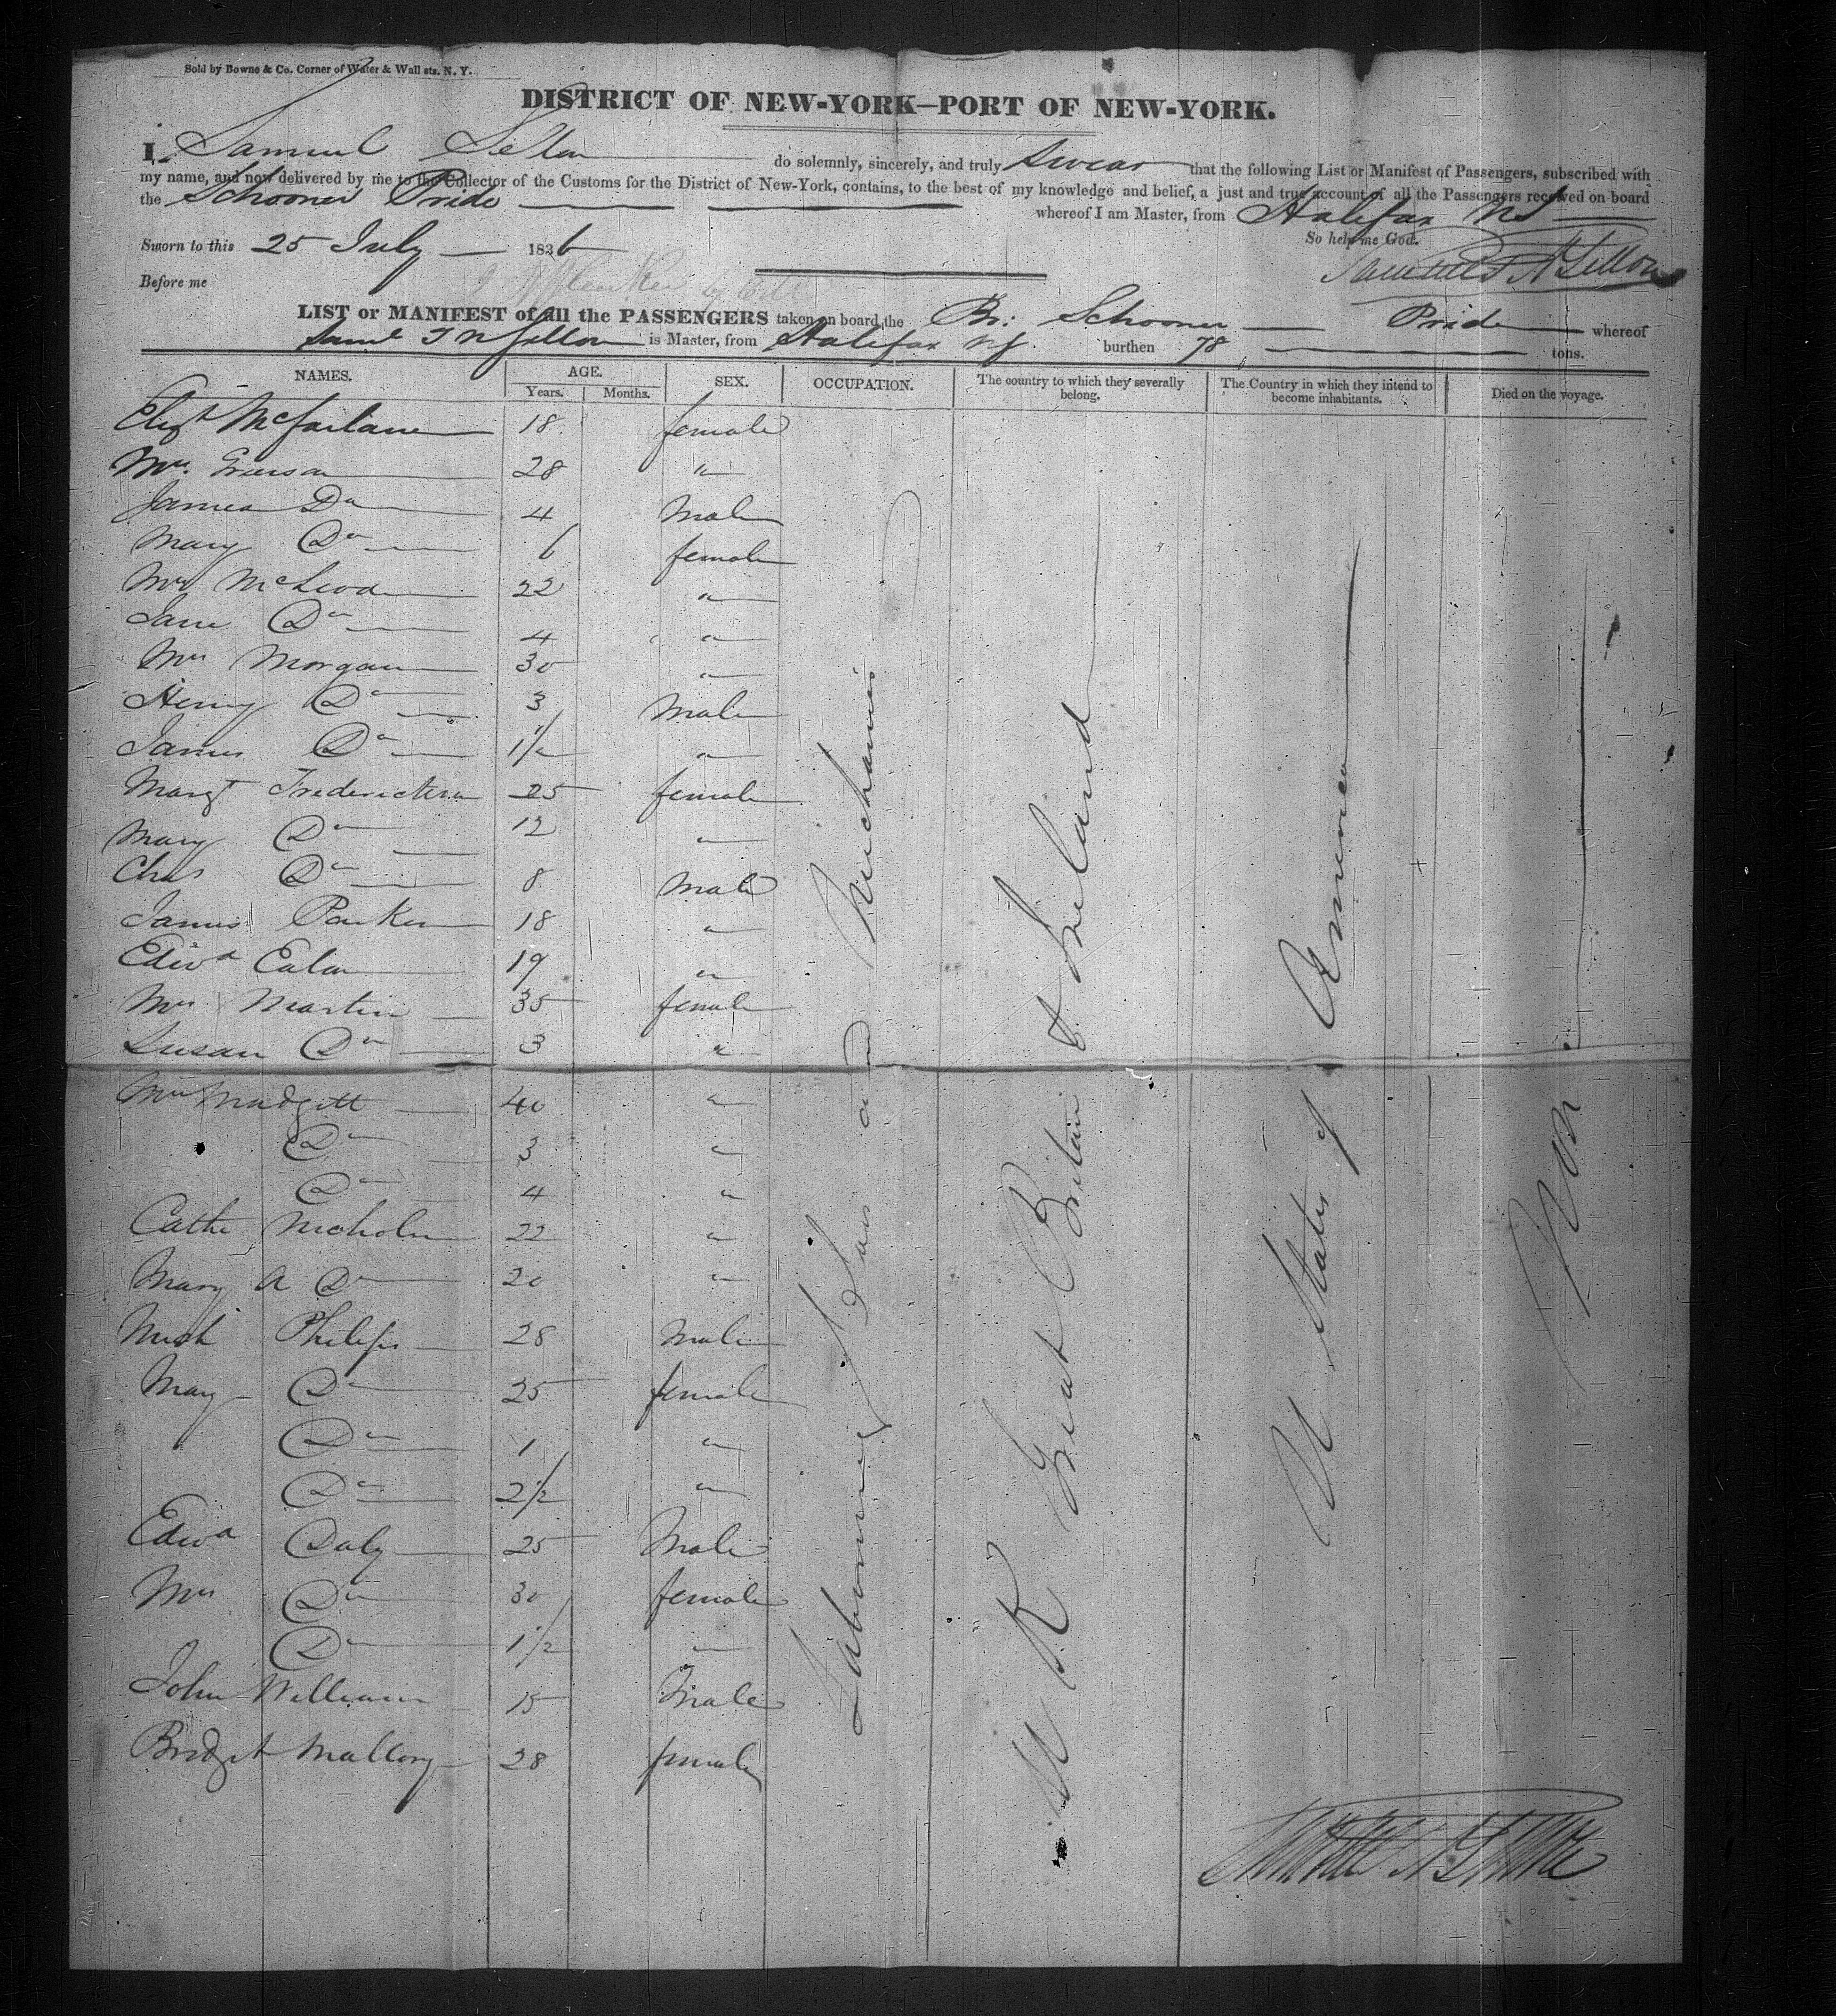 Sold by Bowne & Co. Corner of Water & Wall sts. N. Y.
DISTRICT OF NEW-YORK—PORT OF NEW-YORK.
I, Samuel do solemnly, sincerely, and truly swear that the following List or Manifest of Passengers, subscribed with
my name, and now delivered by me to the Collector of the Customs for the District of New-York, contains, to the best of my knowledge and belief, a just and true account of all the Passengers received on board
the Schooner Pride whereof I am Master, from Halifax NS
Sworn to this 25 July 1836 So help me God.
Before me
LIST or MANIFEST of all the PASSENGERS taken on board the Br: Schooner Pride whereof
Saml is Master, from Halifax NS. burthen 78 tons.
NAMES. AGE. Years. Months. SEX. OCCUPATION. The country to which they severally belong. The Country in which they intend to become inhabitants. Died on the voyage.
Elizth McFarlane 18 female
Mrs. Grierson 28 "
James Do 4 Male
Mary Do 6 female
Mrs McLeod 22 "
Jane Do 4 "
Mrs Morgan 30 "
Henry Do 3 Male
James Do 1 1/2 "
Margt Frederickson 25 female
Mary Do 12 "
Chas Do 8 Male
James Parker 18 "
Edwd 19 "
Mrs Martin 35 female
Susan Do 3 "
Mrs Madgett 40 "
Do 3 "
Do 4 "
Cathe 22 "
Mary A Do 20 "
Mich Philips 28 Male
Mary Do 25 female
Do 1 "
Do 2 1/2 "
Edwd Daly 25 Male
Mrs Do 30 female
Do 1 1/2 "
John William 15 Male
Bridget Mallony 28 female
and Mechanics
U K Great Britain & Ireland
U States of America
Non